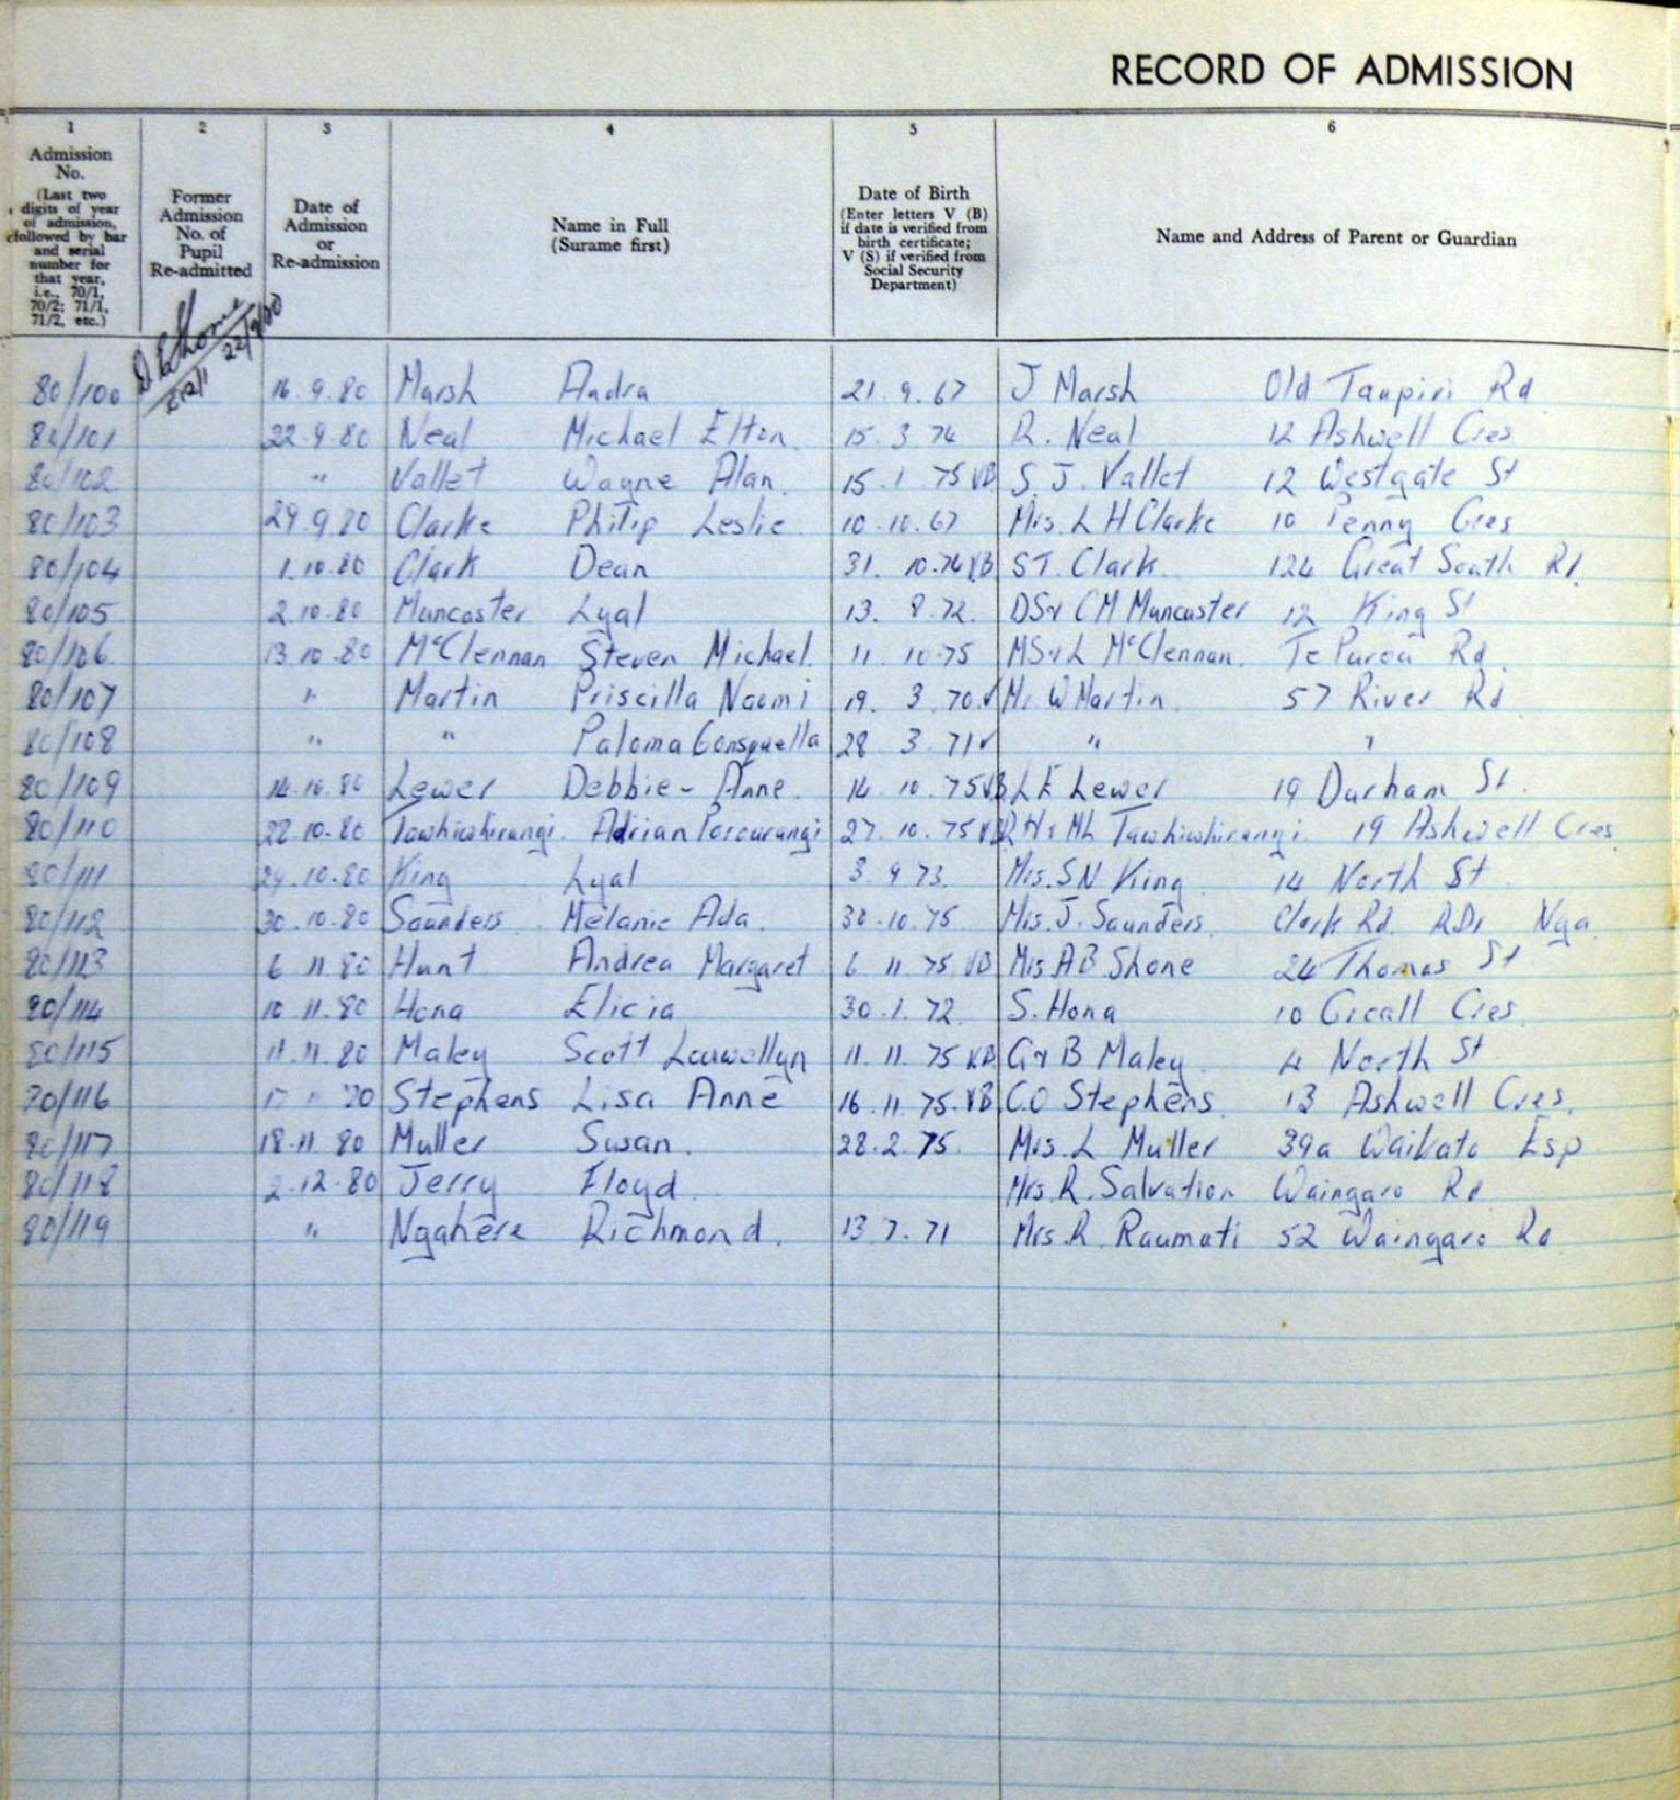 RECORD OF ADMISSION
1 2 3 4 5 6
Admission No. (Last two digits of year of admission, followed by bar and serial number for that year, i.e., 70/1, 70/2; 71/1, 71/2, etc.)
Former Admission No. of Pupil Re-admitted
Date of Admission or Re-admission
Name in Full (Surame first)
Date of Birth (Enter letters V (B) if date is verified from birth certificate; V (S) if verified from Social Security Department)
Name and Address of Parent or Guardian
22/9/80
80/100 16.9.80 Marsh Andra 21.9.67 J Marsh Old Taupiri Rd
80/101 22.9.80 Neal Michael Elton 15.3.74 R. Neal 12 Ashwell Cres
80/102 " Vallet Wayne Alan. 15.1.75 VB S.J. Vallet 12 Westgate St
80/103 29.9.80 Clarke Philip Leslie. 10.10.67 Mrs. L H Clarke 10 Penny Cres
80/104 1.10.80 Clark Dean 31.10.74 VB ST. Clark. 124 Great South Rd.
80/105 2.10.80 Muncaster Lyal 13.8.72. DS & CM Muncaster 12 King St
80/106 13.10.80 McClennan Steven Michael. 11.10.75 MS & L McClennan. Te Puroa Rd.
80/107 " Martin Priscilla Naomi 19.3.70.✓ Mr. W Martin. 57 River Rd
80/108 " " Paloma 28 3.71✓ " "
80/109 14.10.80 Lewer Debbie-Anne. 14.10.75 VB L E Lewer 19 Durham St.
80/110 22.10.80 Tawhiwhirangi. Adrian Porourangi 27.10.75 VB R H & ML Tawhiwhirangi. 19 Ashwell Cres.
80/111 29.10.80 King Lyal 3.9.73. Mrs. SN King. 14 North St
80/112 30.10.80 Saunders Melanie Ada. 30.10.75 Mrs. J. Saunders. Clark Rd. RD1 Nga.
80/113 6.11.80 Hunt Andrea Margaret 6.11.75 VB Mrs AB Shone 24 Thomas St
80/114 10.11.80 Hona Elicia 30.1.72 S. Hona 10 Cres.
80/115 11.11.80 Maley Scott Louwellyn 11.11.75 VB G & B Maley. 4 North St
80/116 Stephens Lisa Anne 16.11.75.VB C.O Stephens. 13 Ashwell Cres.
80/117 18.11.80 Muller Swan. 28.2.75. Mrs. L Muller 39a Waikato Esp
80/118 2.12.80 Jerry Floyd. Mrs. R. Salvation Waingaro Rd
80/119 " Ngahere Richmond. 13.7.71 Mrs. R. Raumati 52 Waingaro Rd